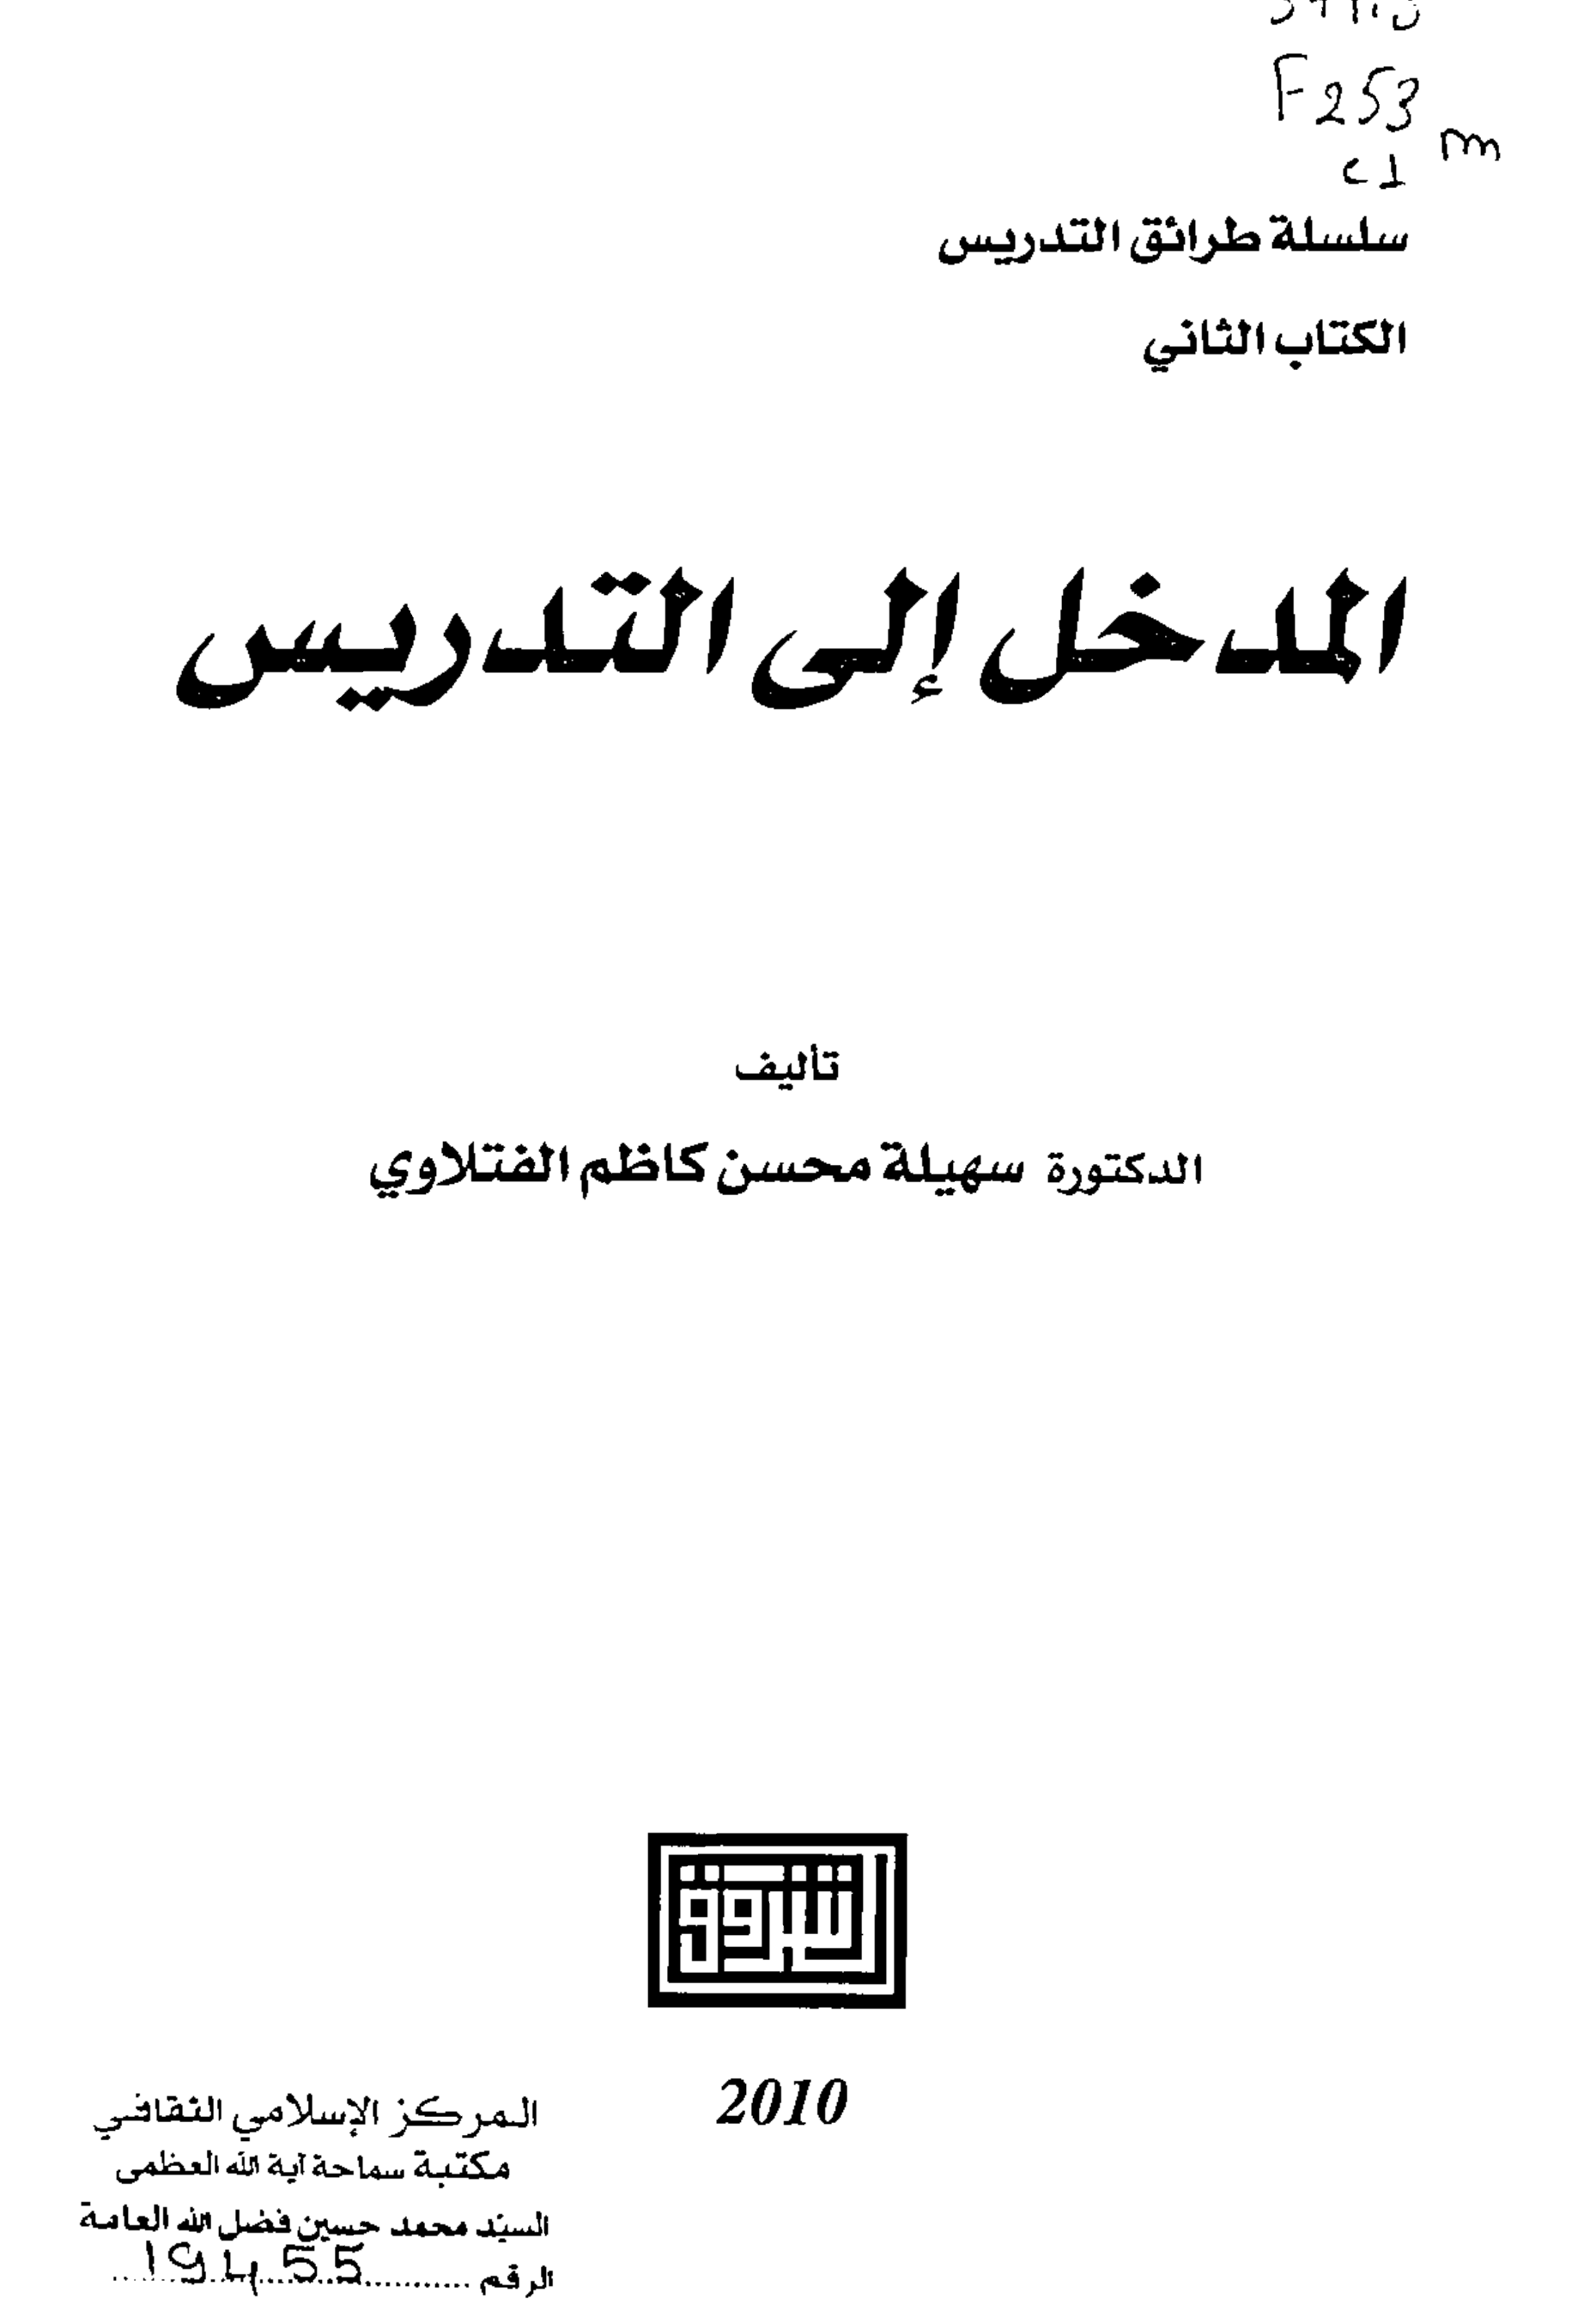 F253
m
c1
سلسلة طرائق التدريس
الكتاب الثاني
المدخل إلى التدريس
تأليف
الدكتورة سهيلة محسن كاظم الفتلاوي
الشروق
2010
المركز الإسلامي الثقافي
مكتبة سماحة آية الله العظمى
السيد محمد حسين فضل الله العامة
الرقم 19455